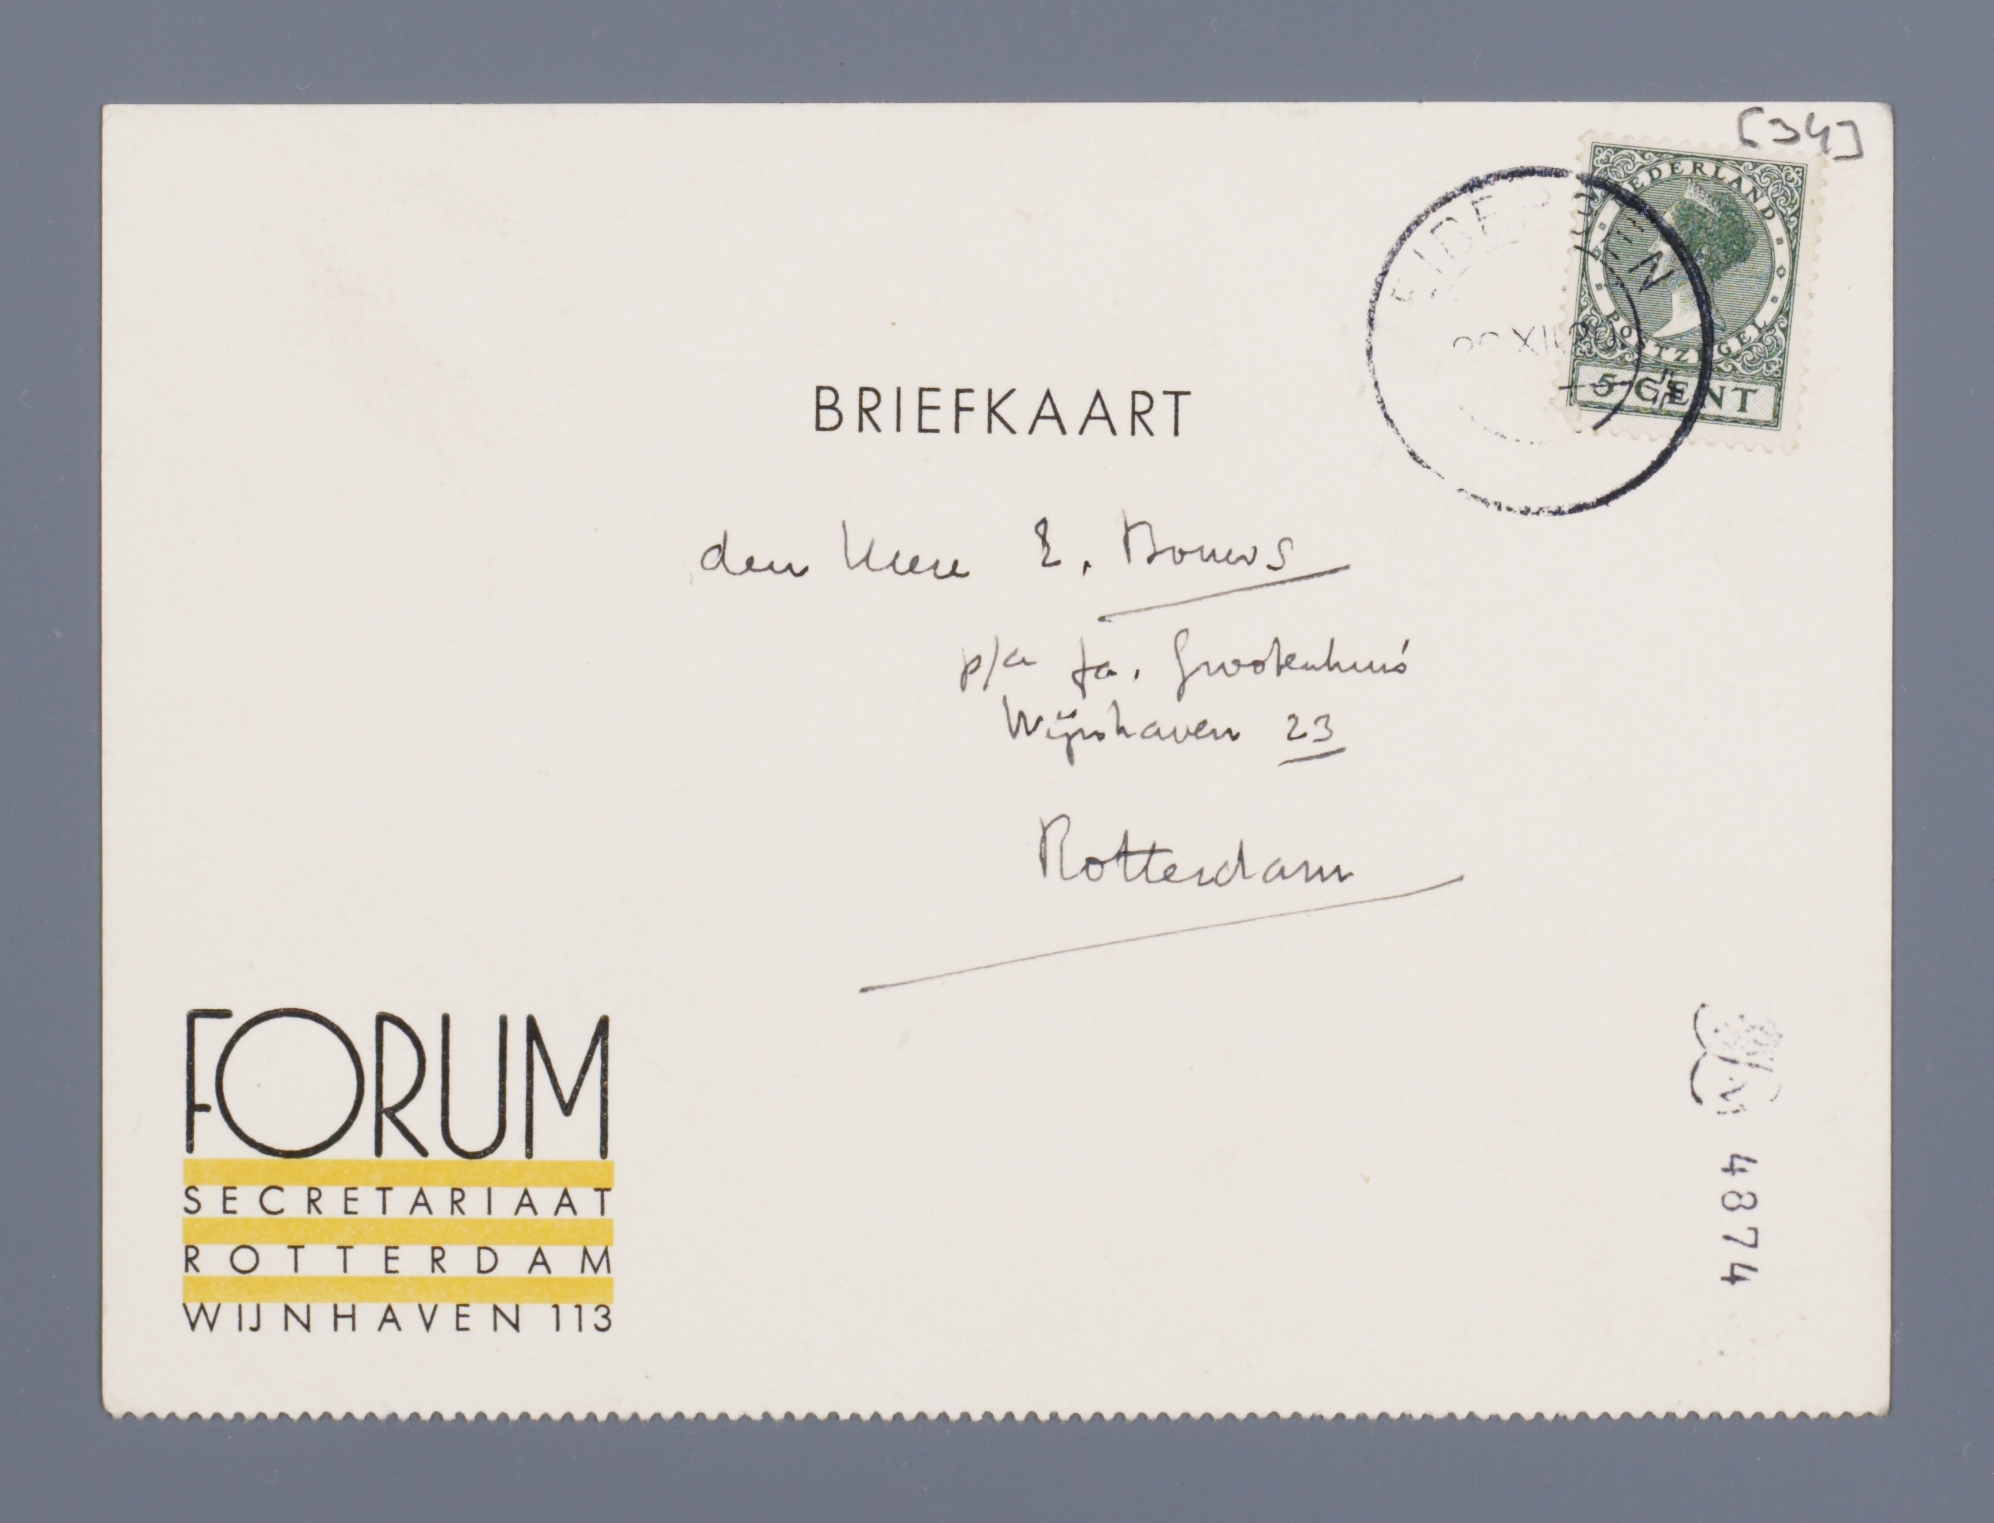 [34]
NEDERLAND
POSTZEGEL
5 CENT
EIBERGEN
BRIEFKAART
den Heere E. Bouws
p/a fa. Grootenhuis
Wijnhaven 23
Rotterdam
FORUM
SECRETARIAAT
ROTTERDAM
WIJNHAVEN 113
4874